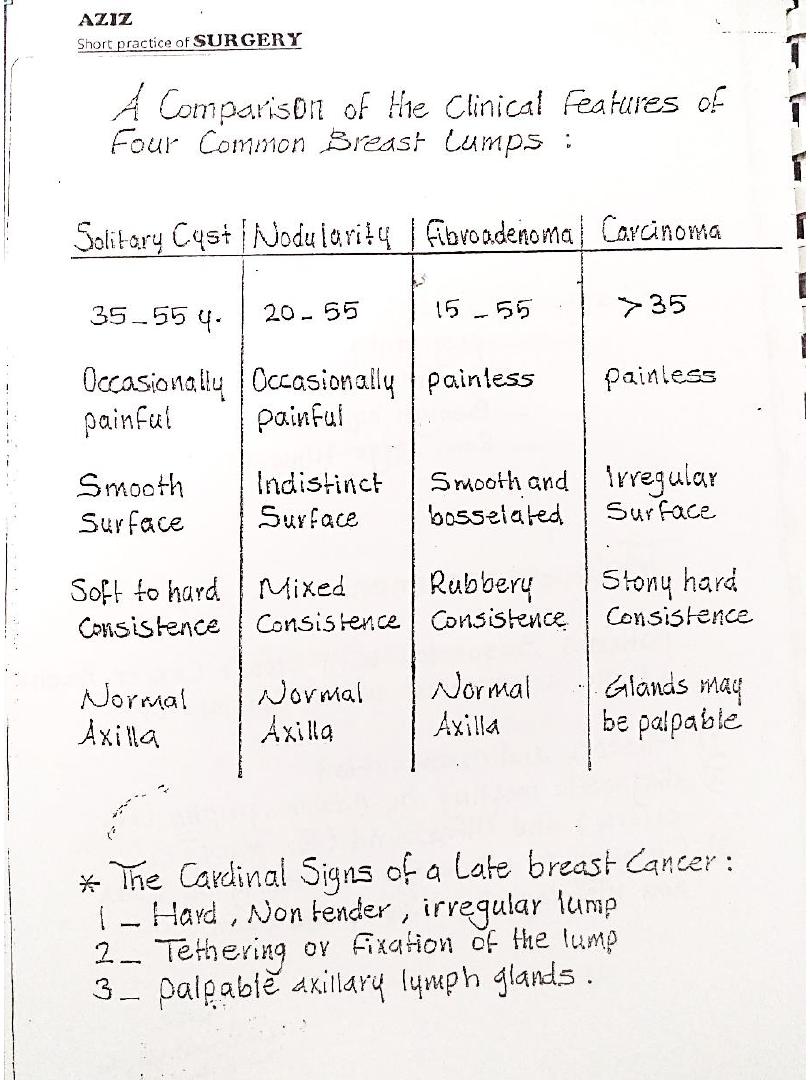 AZIZ
Short practice of SURGERY
A Comparison of the Clinical Features of
Four Common Breast Lumps :
Solitary Cyst | Nodularity | Fibroadenoma | Carcinoma
35 - 55 y. 20 - 55 15 - 55 > 35
Occasionally Occasionally painless painless
painful painful
Smooth Indistinct Smooth and Irregular
Surface Surface bosselated Surface
Soft to hard Mixed Rubbery Stony hard
Consistence Consistence Consistence Consistence
Normal Normal Normal Glands may
Axilla Axilla Axilla be palpable
* The Cardinal Signs of a Late breast Cancer :
1 - Hard , Non tender , irregular lump
2 - Tethering or Fixation of the lump
3 - palpable axillary lymph glands .